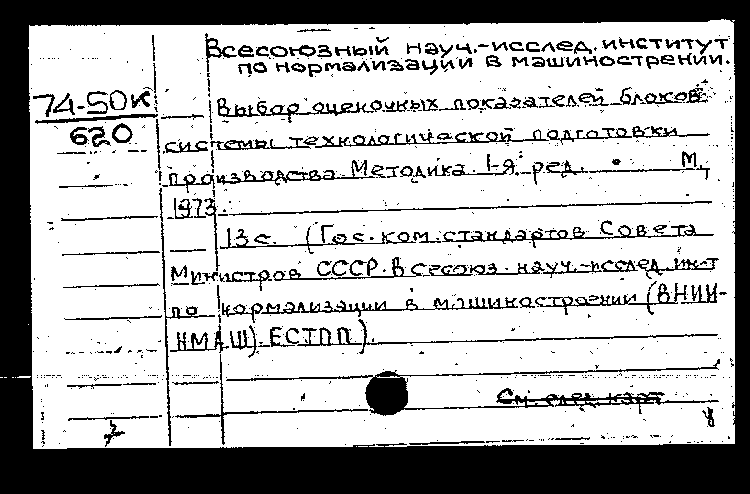 Всесоюзный науч.-исслед. институт
по нормализации в машинострении.
74-50к
620
Выбор оценочных показателей блоков
системы технологической подготовки
производства. Методика. 1-я ред. М.,
1973.
13 с. (Гос. ком. стандартов Совета
Министров СССР. Всесоюз. науч.-исслед. ин-т
по нормализации в машиностроении (ВНИИ-
НМАШ). ЕСТПП).
См. след. карт